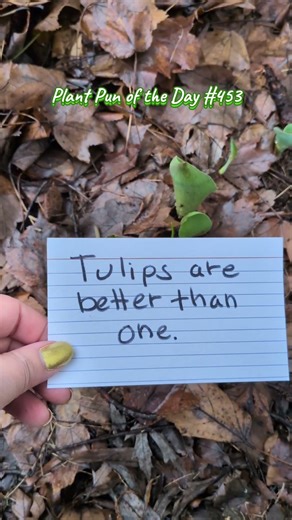 Plant Pun of the Day #453
Tulips are
better than
one.